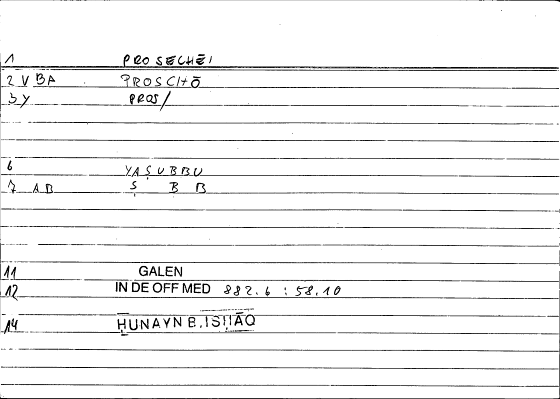 1 PROSECHĒI
2 V BA PROSCHŌ
3 Y PROS/
6 YAṢUBBU
7 AB Ṣ B B
11 GALEN
12 IN DE OFF MED 882.6 : 58.10
14 ḤUNAYN B. ISḤĀQ